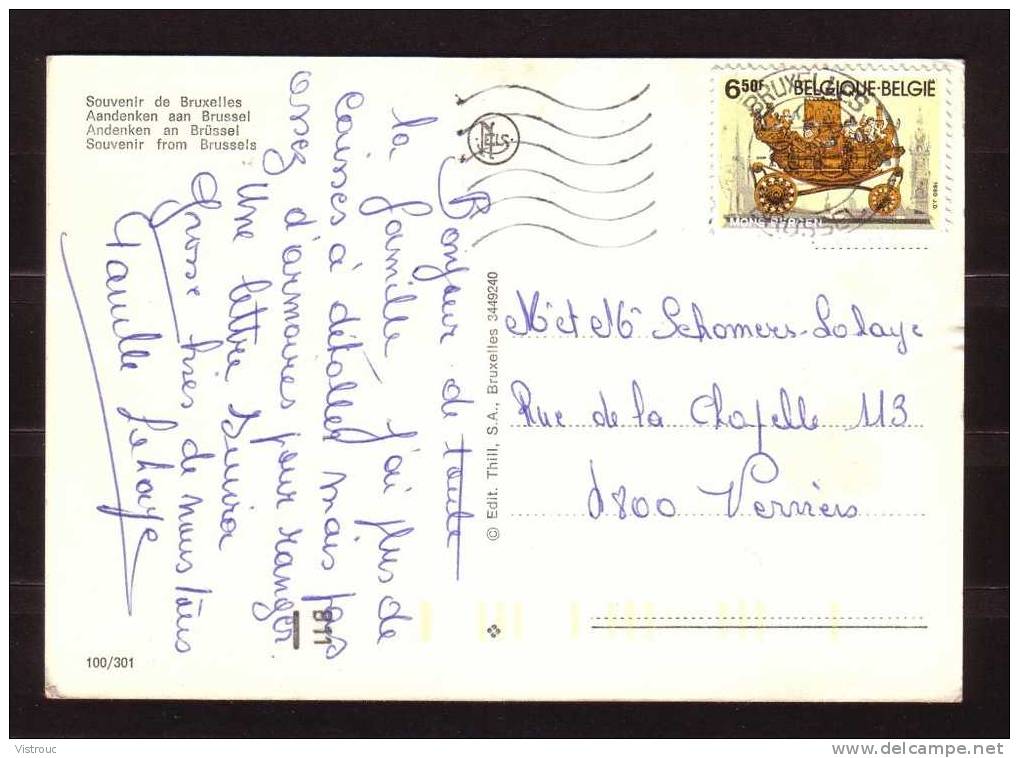 Souvenir de Bruxelles
Aandenken aan Brussel
Andenken an Brüssel
Souvenir from Brussels
NELS
BRUXELLES
6 50F BELGIQUE·BELGIË
MONS BERGEN
1980 J.D.
Bonjour de toute
la famille j'ai plus de
Caisses à déballer mais pas
assez d'armoires pour ranger
Une lettre Suivra
Grosse bises de nous tous
Famille Lehaye
© Edit. Thill, S.A., Bruxelles 3449240
Mr et Me Schomers-Lohaye
Rue de la Chapelle 113
4800 Verviers
811
100/301
Vistrouc
www.delcampe.net